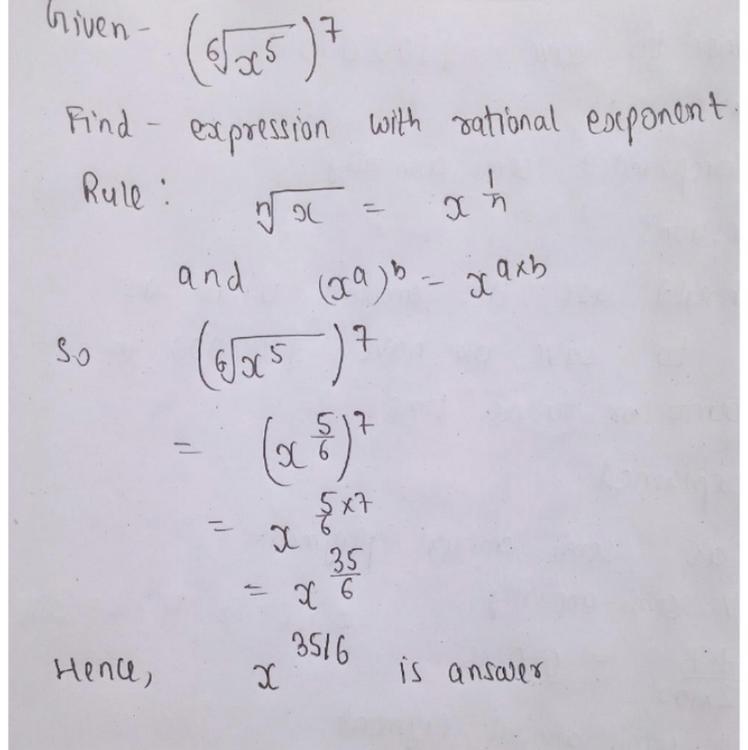 Given - (⁶√x⁵)⁷
Find - expression with rational exponent.
Rule : ⁿ√x = x^(1/n)
and (x^a)^b = x^(a×b)
So (⁶√x⁵)⁷
= (x^(5/6))^7
= x^(5/6 × 7)
= x^(35/6)
Hence, x^(35/6) is answer